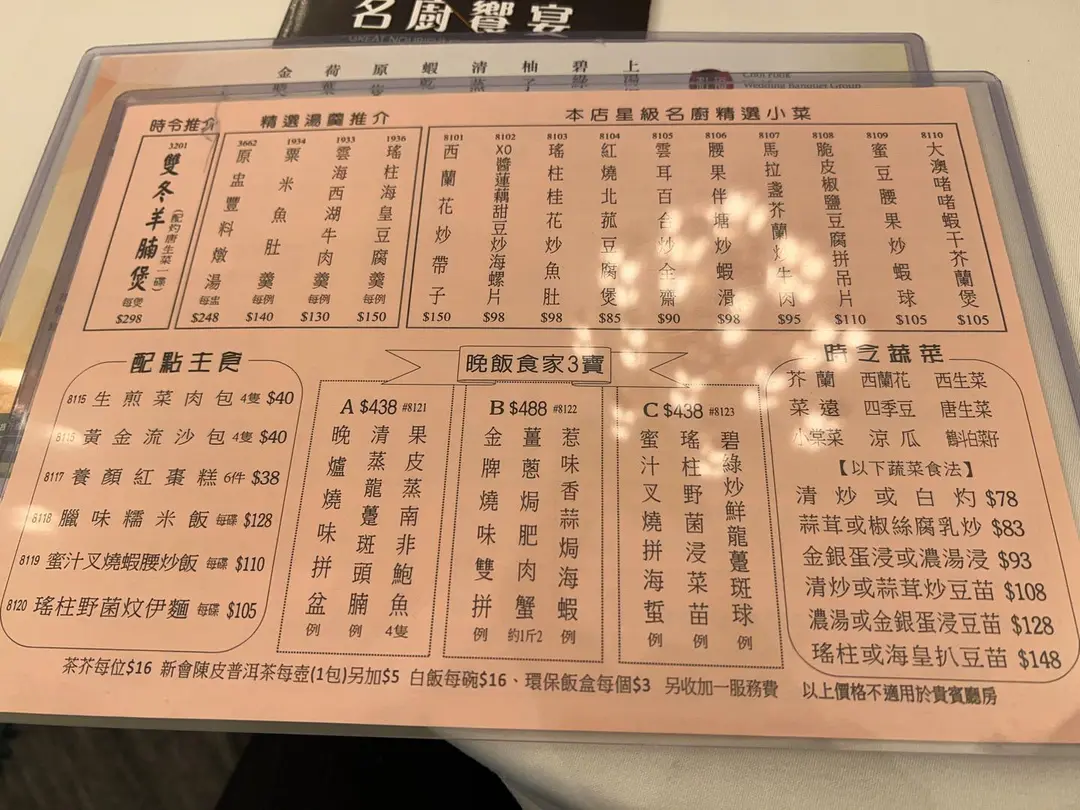 名廚饗宴
金 荷 原 蝦 清 柚 碧 上
Wedding Banquet Group
時令推介
3201
雙冬羊腩煲
(配灼唐生菜一碟)
每煲
$298
精選湯羹推介
3662 原盅豐料燉湯 每盅 $248
1934 粟米魚肚羹 每例 $140
1933 雲海西湖牛肉羹 每例 $130
1936 瑤柱海皇豆腐羹 每例 $150
本店星級名廚精選小菜
8101 西蘭花炒帶子 $150
8102 XO醬蓮藕甜豆炒海螺片 $98
8103 瑤柱桂花炒魚肚 $98
8104 紅燒北菰豆腐煲 $85
8105 雲耳百合炒全齋 $90
8106 腰果伴塘炒蝦滑 $98
8107 馬拉盞芥蘭炒牛肉 $95
8108 脆皮椒鹽豆腐拼吊片 $110
8109 蜜豆腰果炒蝦球 $105
8110 大澳啫啫蝦干芥蘭煲 $105
配點主食
8115 生煎菜肉包 4隻 $40
黃金流沙包 4隻 $40
8117 養顏紅棗糕 6件 $38
8118 臘味糯米飯 每碟 $128
8119 蜜汁叉燒蝦腰炒飯 每碟 $110
8120 瑤柱野菌炆伊麵 每碟 $105
晚飯食家3寶
A $438 #8121
果皮蒸南非鮑魚 4隻
清蒸龍躉斑頭腩 例
晚爐燒味拼盆 例
B $488 #8122
惹味香蒜焗海蝦 例
薑蔥焗肥肉蟹 約1斤2
金牌燒味雙拼 例
C $438 #8123
碧綠炒鮮龍躉斑球 例
瑤柱野菌浸菜苗 例
蜜汁叉燒拼海蜇 例
時令蔬菜
芥蘭 西蘭花 西生菜
菜遠 四季豆 唐生菜
小棠菜 涼瓜
【以下蔬菜食法】
清炒或白灼 $78
蒜茸或椒絲腐乳炒 $83
金銀蛋浸或濃湯浸 $93
清炒或蒜茸炒豆苗 $108
濃湯或金銀蛋浸豆苗 $128
瑤柱或海皇扒豆苗 $148
茶芥每位$16 新會陳皮普洱茶每壺(1包)另加$5 白飯每碗$16、環保飯盒每個$3 另收加一服務費 以上價格不適用於貴賓廳房